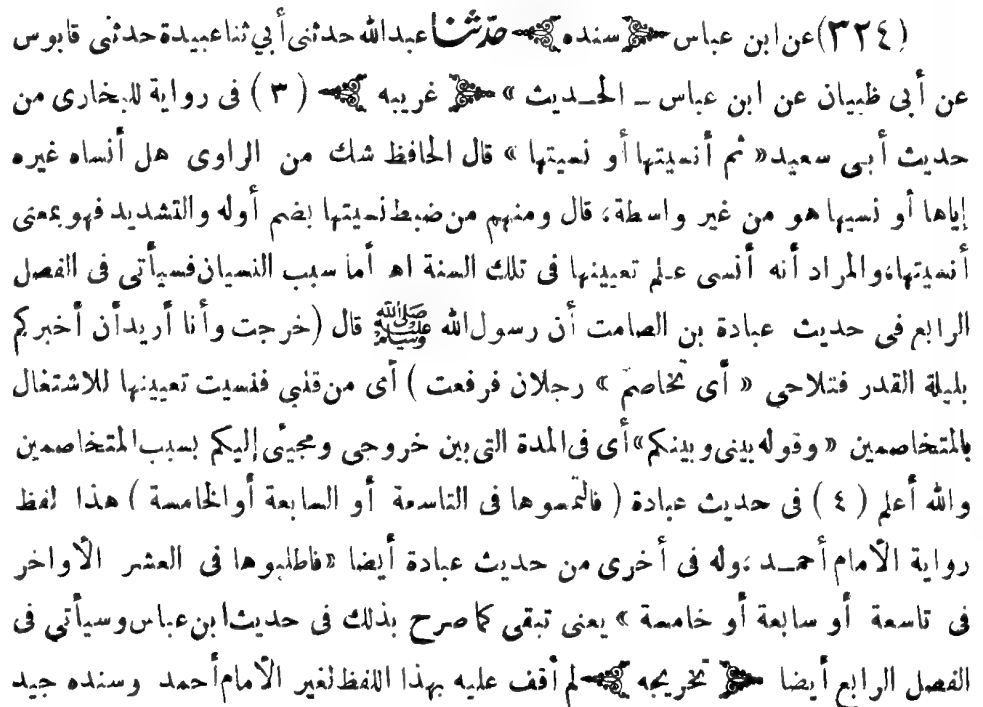 (٣٢٤) عن ابن عباس ﴿سنده﴾ حدّثنا عبد الله حدثنى أبي ثنا عبيدة حدثنى قابوس
عن أبى ظبيان عن ابن عباس ــ الحـديث » ﴿غريبه﴾ ( ٣ ) فى رواية للبخارى من
حديث أبى سعيد « ثم أنسيتها أو نسيتها » قال الحافظ شك من الراوى هل أنساه غيره
إياها أو نسيها هو من غير واسطة، قال ومنهم من ضبط نسيتها بضم أوله والتشديد فهو بمعنى
أنسيتها، والمراد أنه أنسى علم تعيينها فى تلك السنة اهـ أما سبب النسيان فسيأتى فى الفصل
الرابع فى حديث عبادة بن الصامت أن رسول الله ﷺ قال (خرجت وأنا أريد أن أخبركم
بليلة القدر فتلاحى « أى تخاصم » رجلان فرفعت ) أى من قلبى فنسيت تعيينها للاشتغال
بالمتخاصمين « وقوله بينى وبينكم » أى فى المدة التى بين خروجى ومجيئى إليكم بسبب المتخاصمين
والله أعلم ( ٤ ) فى حديث عبادة ( فالتمسوها فى التاسعة أو السابعة أو الخامسة ) هذا لفظ
رواية الأمام أحمـد ،وله فى أخرى من حديث عبادة أيضا «فاطلبوها فى العشر الأواخر
فى تاسعة أو سابعة أو خامسة » يعنى تبقى كما صرح بذلك فى حديث ابن عباس وسيأتي فى
الفصل الرابع أيضا ﴿تخريجه﴾ لم أقف عليه بهذا اللفظ لغير الأمام أحمد وسنده جيد